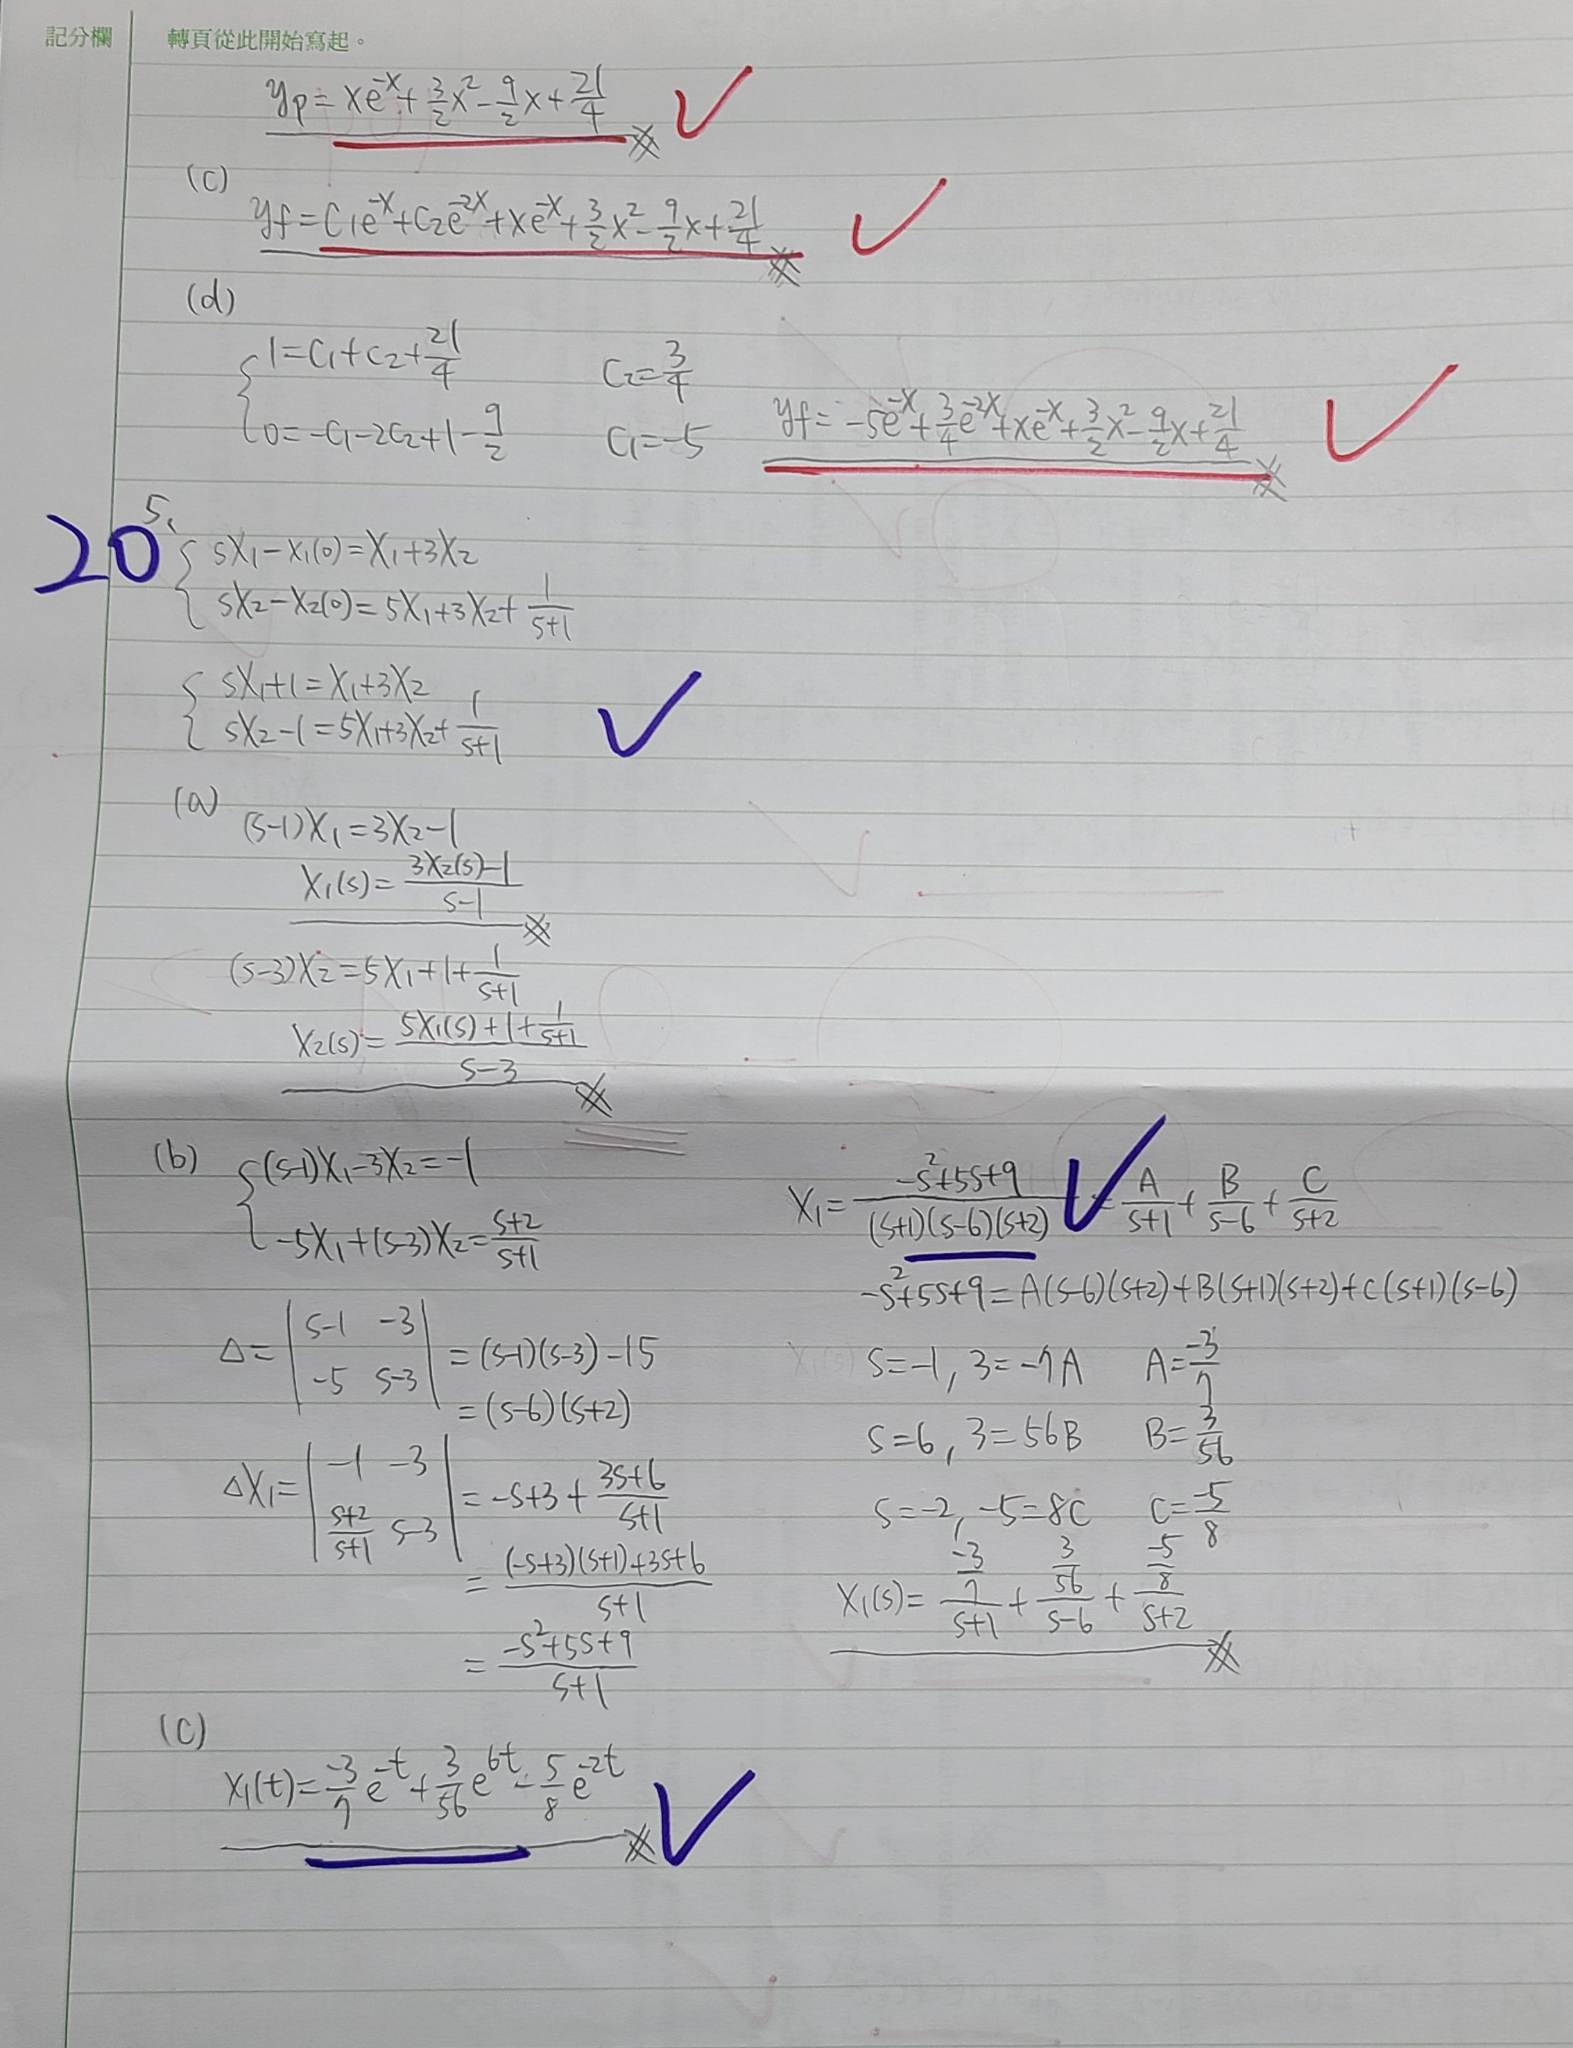 記分欄 轉頁從此開始寫起。
yp = xe^-x + 3/2 x^2 - 9/2 x + 21/4
(c)
yf = C1e^-x + C2e^-2x + xe^-x + 3/2 x^2 - 9/2 x + 21/4
(d)
1 = C1 + C2 + 21/4 C2 = 3/4
0 = -C1 - 2C2 + 1 - 9/2 C1 = -5 yf = -5e^-x + 3/4 e^-2x + xe^-x + 3/2 x^2 - 9/2 x + 21/4
20
5.
sX1 - X1(0) = X1 + 3X2
sX2 - X2(0) = 5X1 + 3X2 + 1/(s+1)
sX1 + 1 = X1 + 3X2
sX2 - 1 = 5X1 + 3X2 + 1/(s+1)
(a)
(s-1)X1 = 3X2 - 1
X1(s) = (3X2(s) - 1)/(s-1)
(s-3)X2 = 5X1 + 1 + 1/(s+1)
X2(s) = (5X1(s) + 1 + 1/(s+1))/(s-3)
(b)
(s-1)X1 - 3X2 = -1
-5X1 + (s-3)X2 = (s+2)/(s+1)
Δ = | s-1 -3 |
| -5 s-3 | = (s-1)(s-3) - 15
= (s-6)(s+2)
ΔX1 = | -1 -3 |
| (s+2)/(s+1) s-3 | = -s+3 + (3s+6)/(s+1)
= ((-s+3)(s+1) + 3s+6)/(s+1)
= (-s^2+5s+9)/(s+1)
X1 = (-s^2+5s+9)/((s+1)(s-6)(s+2)) = A/(s+1) + B/(s-6) + C/(s+2)
-s^2+5s+9 = A(s-6)(s+2) + B(s+1)(s+2) + C(s+1)(s-6)
s=-1, 3=-7A A=-3/7
s=6, 3=56B B=3/56
s=-2, -5=8C C=-5/8
X1(s) = (-3/7)/(s+1) + (3/56)/(s-6) + (-5/8)/(s+2)
(c)
X1(t) = -3/7 e^-t + 3/56 e^6t - 5/8 e^-2t